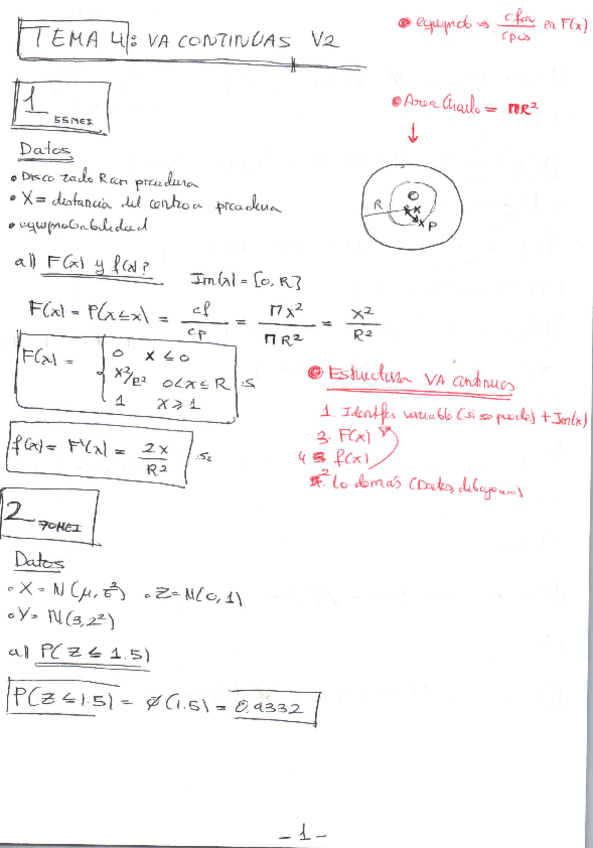 TEMA 4: VA CONTINUAS V2
• equiprob ⇒ cfav/cpos en F(x)
1 55MEI
• Area Circulo = πR²
Datos
• Disco radio R con picadura
• X = distancia del centro a picadura
• equiprobabilidad
R O x x P
a) F(x) y f(x)? Im(x) = [0, R}
F(x) = P(X≤x) = cf/cp = πx²/πR² = x²/R²
F(x) = { 0 x ≤ 0
x²/R² 0<x≤R
1 x ≥ 1
• Estructura VA continuas
1. Identifcr variable (si se puede) + Im(x)
3. F(x)
f(x) = F'(x) = 2x/R²
4 f(x)
2 Lo demás (Datos, dibujo...)
2 70MEI
Datos
• X = N(μ, σ²) • Z = N(0, 1)
• Y = N(3, 2²)
a) P(Z ≤ 1.5)
P(Z ≤ 1.5) = φ(1.5) = 0.9332
- 1 -